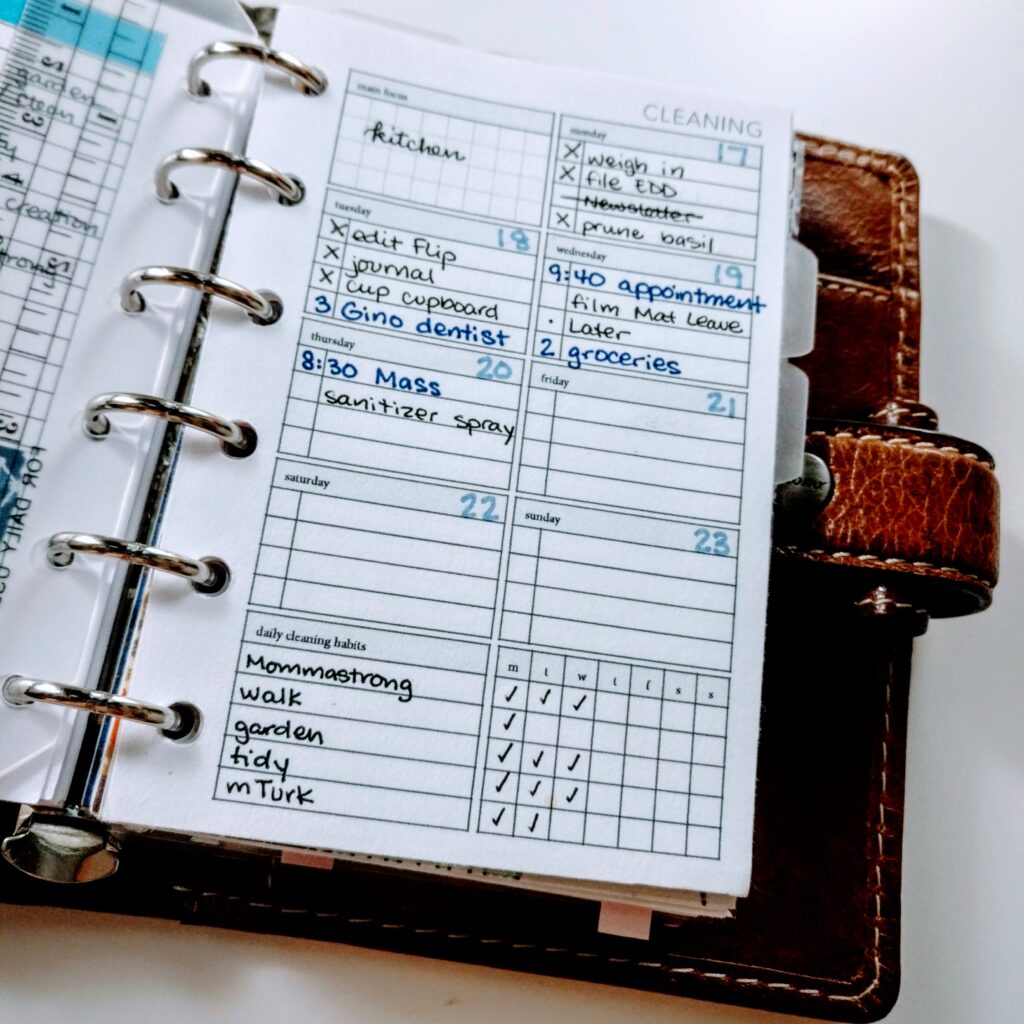 CLEANING
main focus
kitchen
monday 17
X weigh in
X file EDD
Newsletter
X prune basil
tuesday 18
X edit Flip
X journal
X cup cupboard
3 Gino dentist
wednesday 19
9:40 appointment
film Mat Leave
. Later
2 groceries
thursday 20
8:30 Mass
sanitizer spray
friday 21
saturday 22
sunday 23
daily cleaning habits
m t w t f s s
Mommastrong ✓ ✓ ✓
walk ✓
garden ✓ ✓ ✓
tidy ✓ ✓ ✓
mTurk ✓ ✓
garden
clean
creation
FOR DAILY